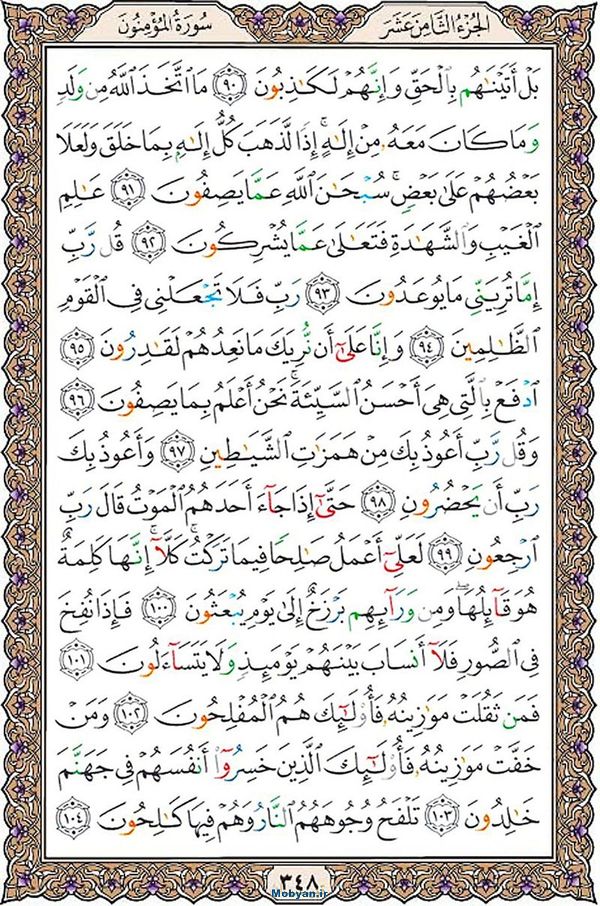 الجُزءُ الثَّامِنَ عَشَرَ
سُورَةُ المُؤْمِنُون
بَلْ أَتَيْنَٰهُم بِٱلْحَقِّ وَإِنَّهُمْ لَكَٰذِبُونَ ٩٠ مَا ٱتَّخَذَ ٱللَّهُ مِن وَلَدٍ
وَمَا كَانَ مَعَهُۥ مِنْ إِلَٰهٍ ۚ إِذًا لَّذَهَبَ كُلُّ إِلَٰهٍۭ بِمَا خَلَقَ وَلَعَلَا
بَعْضُهُمْ عَلَىٰ بَعْضٍ ۚ سُبْحَٰنَ ٱللَّهِ عَمَّا يَصِفُونَ ٩١ عَٰلِمِ
ٱلْغَيْبِ وَٱلشَّهَٰدَةِ فَتَعَٰلَىٰ عَمَّا يُشْرِكُونَ ٩٢ قُل رَّبِّ
إِمَّا تُرِيَنِّى مَا يُوعَدُونَ ٩٣ رَبِّ فَلَا تَجْعَلْنِى فِى ٱلْقَوْمِ
ٱلظَّٰلِمِينَ ٩٤ وَإِنَّا عَلَىٰٓ أَن نُّرِيَكَ مَا نَعِدُهُمْ لَقَٰدِرُونَ ٩٥
ٱدْفَعْ بِٱلَّتِى هِىَ أَحْسَنُ ٱلسَّيِّئَةَ ۚ نَحْنُ أَعْلَمُ بِمَا يَصِفُونَ ٩٦
وَقُل رَّبِّ أَعُوذُ بِكَ مِنْ هَمَزَٰتِ ٱلشَّيَٰطِينِ ٩٧ وَأَعُوذُ بِكَ
رَبِّ أَن يَحْضُرُونِ ٩٨ حَتَّىٰٓ إِذَا جَآءَ أَحَدَهُمُ ٱلْمَوْتُ قَالَ رَبِّ
ٱرْجِعُونِ ٩٩ لَعَلِّىٓ أَعْمَلُ صَٰلِحًا فِيمَا تَرَكْتُ ۚ كَلَّآ ۚ إِنَّهَا كَلِمَةٌ
هُوَ قَآئِلُهَا ۖ وَمِن وَرَآئِهِم بَرْزَخٌ إِلَىٰ يَوْمِ يُبْعَثُونَ ١٠٠ فَإِذَا نُفِخَ
فِى ٱلصُّورِ فَلَآ أَنسَابَ بَيْنَهُمْ يَوْمَئِذٍ وَلَا يَتَسَآءَلُونَ ١٠١
فَمَن ثَقُلَتْ مَوَٰزِينُهُۥ فَأُو۟لَٰٓئِكَ هُمُ ٱلْمُفْلِحُونَ ١٠٢ وَمَنْ
خَفَّتْ مَوَٰزِينُهُۥ فَأُو۟لَٰٓئِكَ ٱلَّذِينَ خَسِرُوٓا۟ أَنفُسَهُمْ فِى جَهَنَّمَ
خَٰلِدُونَ ١٠٣ تَلْفَحُ وُجُوهَهُمُ ٱلنَّارُ وَهُمْ فِيهَا كَٰلِحُونَ ١٠٤
٣٤٨
Mobyan.ir